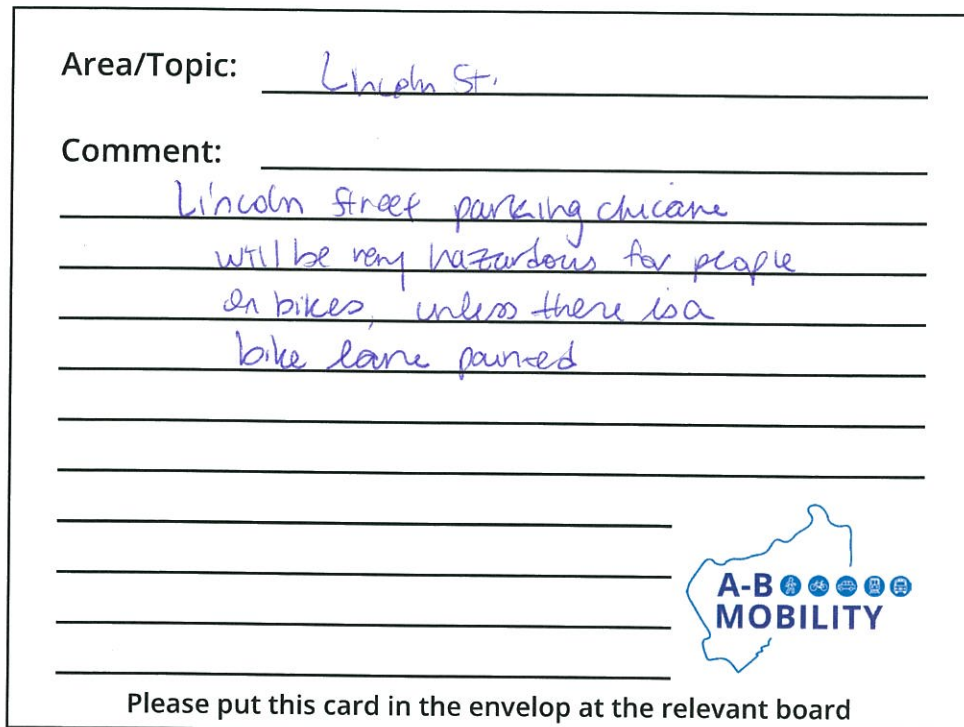 Area/Topic: Lincoln St.
Comment:
Lincoln Street parking chicane
will be very hazardous for people
on bikes, unless there is a
bike lane painted
A-B
MOBILITY
Please put this card in the envelop at the relevant board